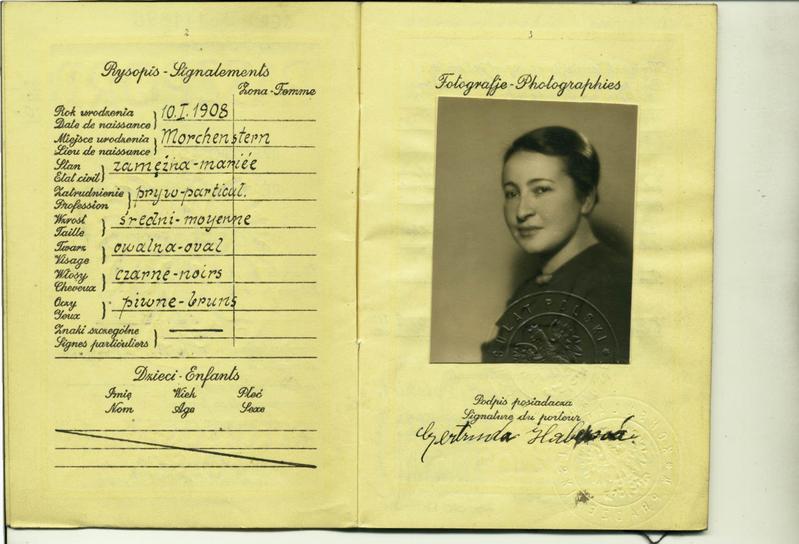 2
Rysopis - Signalements
Żona - Femme
Rok urodzenia
Date de naissance
10.I.1908
Miejsce urodzenia
Lieu de naissance
Morchenstern
Stan
Etat civil
zamężna - mariée
Zatrudnienie
Profession
pryw - particul.
Wzrost
Taille
średni - moyenne
Twarz
Visage
owalna - oval
Włosy
Cheveux
czarne - noirs
Oczy
Yeux
piwne - bruns
Znaki szczególne
Signes particuliers
Dzieci - Enfants
Imię Wiek Płeć
Nom Age Sexe
3
Fotografje - Photographies
POLSKI
Podpis posiadacza
Signature du porteur
Gertruda